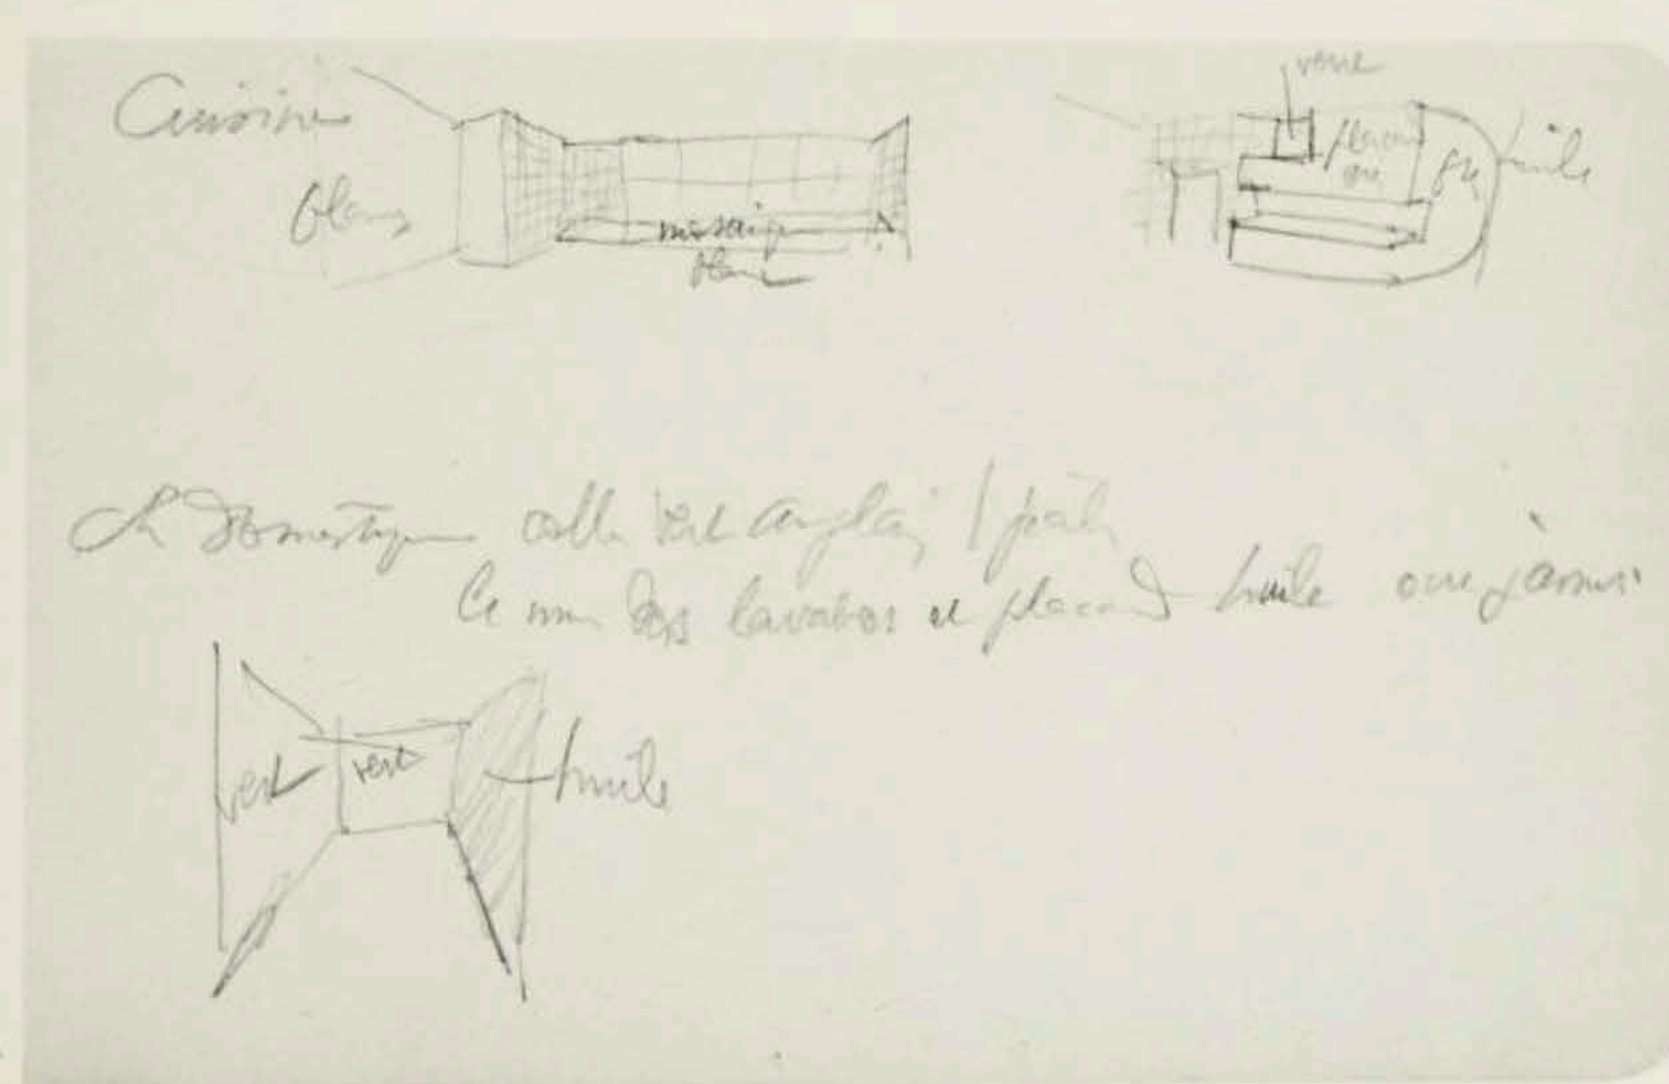 Cuisine
blanc
mosaiq
blanc
verre
placard
gris
gris
huile
Ch Domestique colle vert anglais / pâle
Ce mur des lavabos et placard huile ocre jaune
vert
vert
huile